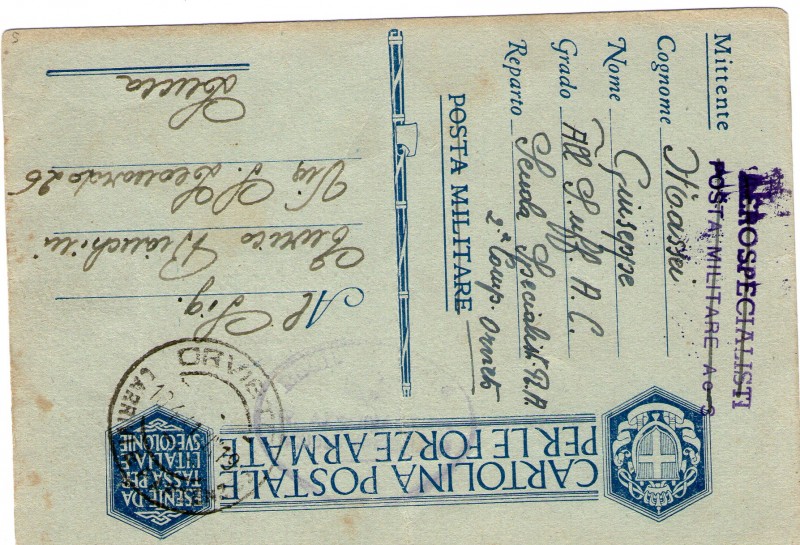 CARTOLINA POSTALE
PER LE FORZE ARMATE
ESENTE DA
TASSA PER
L'ITALIA
SVE COLONIE
ORVIETO
Al Sig.
Enrico Bianchini
Via S. Leonardo 26
Lucca
Mittente
Cognome Massei
Nome Giuseppe
Grado All. S. Uff. A. C.
Reparto Scuola Specialisti R. A.
2ª Comp. Orvieto
POSTA MILITARE
AEROSPECIALISTI
POSTA MILITARE A o S